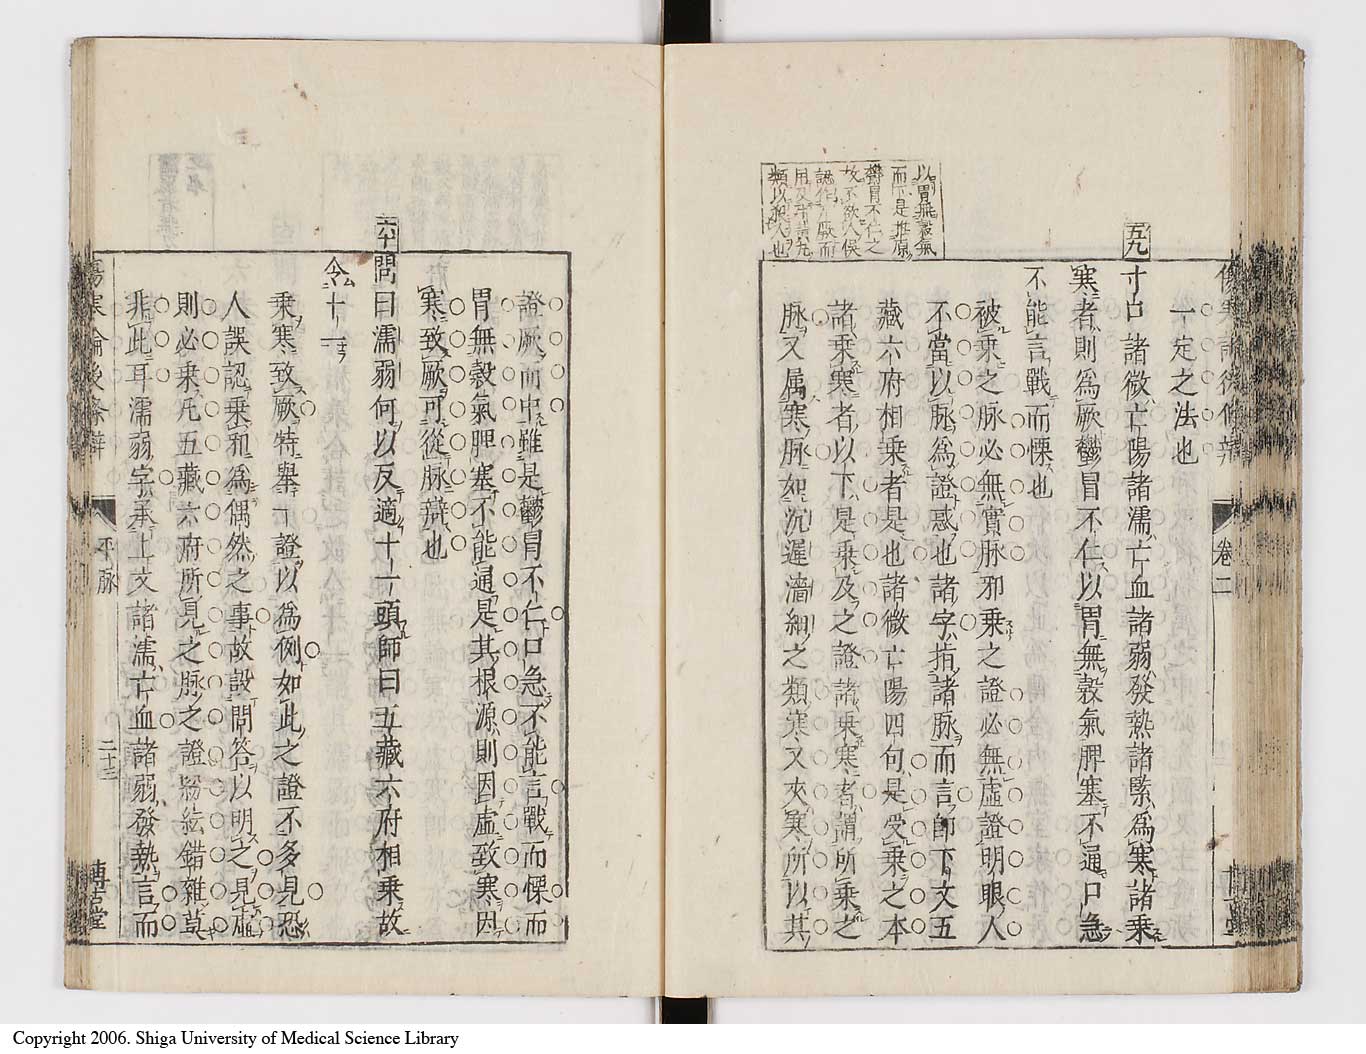 傷寒論後條辨
卷二
一定之法也
五九
寸口諸微亡陽諸濡亡血諸弱發熱諸緊為寒諸乘
寒者則為厥鬱冒不仁以胃無穀氣脾塞不通口急
不能言戰而慄也
被乘之脉必無實脉邪乘之證必無虛證明眼人
不當以脉為證惑也諸字指諸脉而言師下文五
藏六府相乘者是也諸微亡陽四句是受乘之本
諸乘寒者以下是乘及之證諸乘寒者謂所乘之
脉又属寒脉如沉遲濇細之類寒又夾寒所以其
以胃無穀氣
而下是推原
鬱冒不仁之
故不欲人悞
認作厥而
類以誤人也
證厥而中雖是鬱冒不仁口急不能言戰而慄而
胃無穀氣脾塞不能通是其根源則因虛致寒因
寒致厥可從脉辯也
六十
問曰濡弱何以反適十一頭師曰五藏六府相乘故
令十一
乘寒致厥特舉一證以為例如此之證不多見恐
人誤認乘邪為偶然之事故設問答以明之見虛
則必乘凡五藏六府所見之脉之證紛紜錯雜莫
非此耳濡弱字承上文諸濡亡血諸弱發熱言而
傷寒論後條辨
平脉
二十三
博古堂